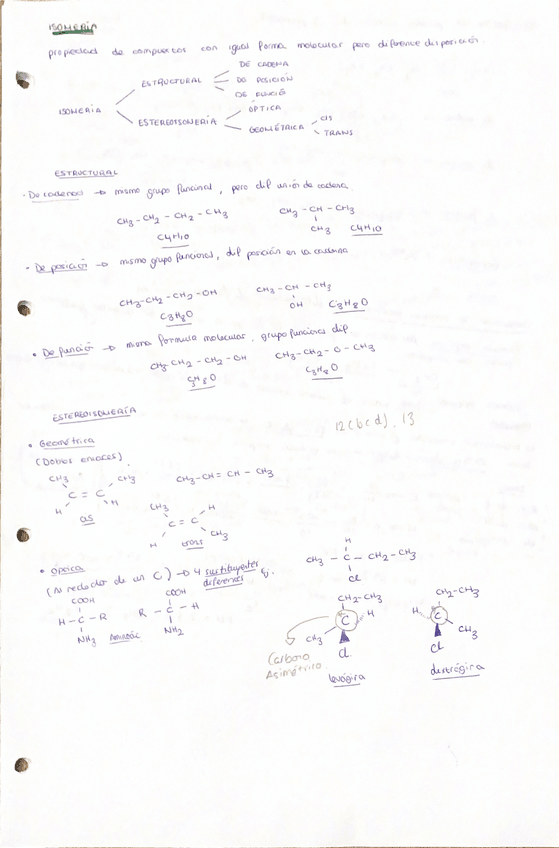 ISOMERÍA
propiedad de compuestos con igual forma molecular pero diferente disposición.
ISOMERÍA
ESTRUCTURAL
DE CADENA
DE POSICIÓN
DE FUNCIÓ
ESTEREOISOMERÍA
ÓPTICA
GEOMÉTRICA
CIS
TRANS
ESTRUCTURAL
- De cadena → mismo grupo funcional, pero dif unión de cadena
CH3 - CH2 - CH2 - CH3
C4H10
CH3 - CH - CH3
CH3
C4H10
- De posición → mismo grupo funcional, dif posición en la cadena
CH3-CH2-CH2-OH
C3H8O
CH3 - CH - CH3
OH
C3H8O
• De función → misma formula molecular, grupo funcional dif
CH3 CH2 - CH2 - OH
C3H8O
CH3 - CH2 - O - CH3
C3H8O
ESTEREOISOMERÍA
12(b c d), 13
• Geométrica
(Dobles enlaces)
CH3 CH3
C = C
H H
cis
CH3-CH = CH - CH3
CH3 H
C = C
H CH3
trans
• óptica
(Al rededor de un C) → 4 sustituyentes
diferentes Ej.
COOH
H - C - R
NH2 Aminoác
COOH
R - C - H
NH2
H
CH3 - C - CH2 - CH3
Cl
CH2-CH3
C H
CH3
Cl
Carbono
Asimétrico
levógira
CH2-CH3
H C
CH3
Cl
dextrógira